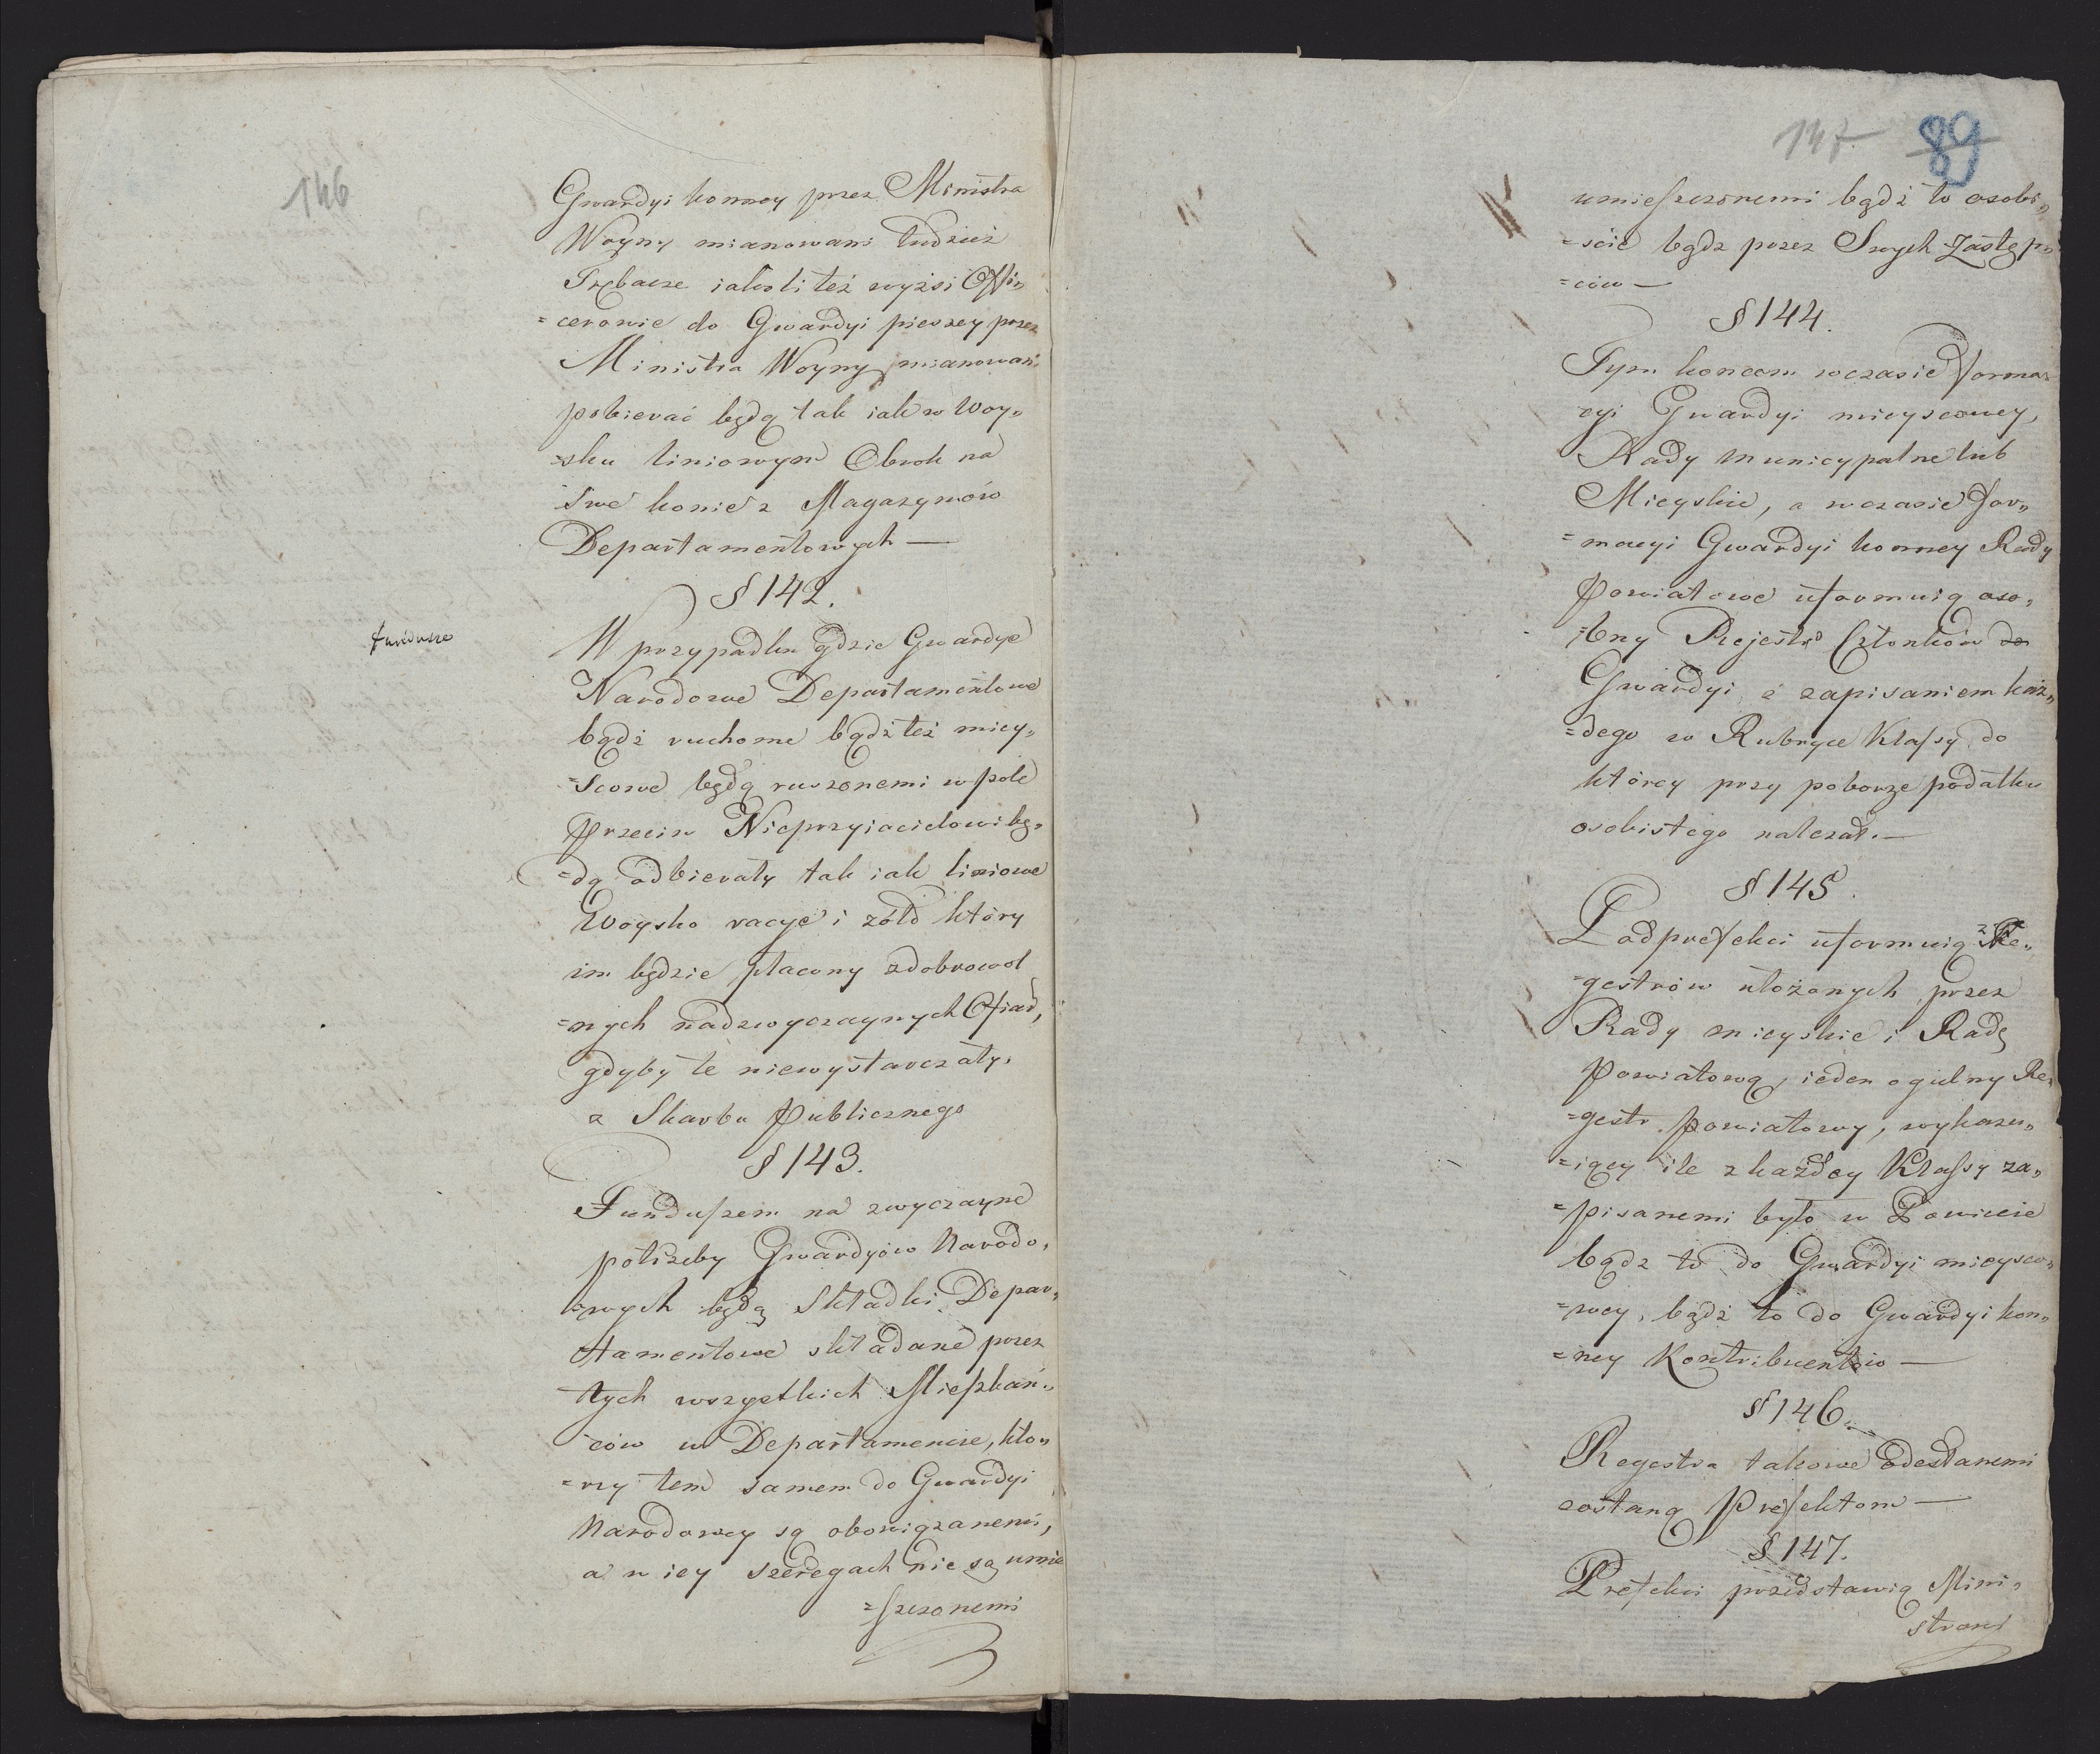 146
Gwardyi konney przez Ministra
Woyny mianowani tudzież
Trębacze iakoli też wyżsi Offi„
=cerowie do Gwardyi pieszey przez
Ministra Woyny mianowani
pobierać będą tak iak w Woy„
=sku liniowym Obrok na
swe konie z Magazynów
Departamentowych —
§ 142.
fundusze
W przypadku gdzie Gwardye
Narodowe Departamentowe
bądź ruchome bądź też miey„
=scowe będą ruszonemi w pole
przeciw Nieprzyiacielowi bę„
=dą odbierały tak iak liniowe
Woysko racye i żołd który
im będzie płacony z dobrowol
=nych nadzwyczaynych Ofiar,
gdyby te niewystarczały,
z Skarbu publicznego
§ 143.
Funduszem na zwyczayne
potrzeby Gwardyów Narodo„
=wych będą Składki Depar„
tamentowe składane przez
tych wszystkich Mieszkań„
ców w Departamencie, kto„
=rzy tem samem do Gwardyi
Narodowey są obowiązanemi,
a w iey szeregach nie są umie
=szczonemi
147 89
umieszczonemi bądź to osobi„
=ście bądz przez Swych Zastęp„
=ców —
§ 144.
Tym koncem wczasie forma„
cyi Gwardyi mieyscowey,
Rady municypalne lub
Mieyskie, a wczasie for„
=macyi Gwardyi konney Rady
powiatowe uformuią oso„
=bny Rejestr Członków do
Gwardyi z zapisaniem każ„
=dego w Rubryce Klassy do
którey przy poborze podatku
osobistego należał. —
§ 145.
Podprefekci uformuią z Re„
=gestrów ułożonych przez
Rady mieyskie i Radę
powiatową, ieden ogulny Re„
=gestr powiatowy, wykazu„
=iący ile z każdey Klassy za„
=pisanemi było w Powiecie
bądz to do Gwardyi mieysco„
=wey, bądź to do Gwardyi kon„
=ney Kontribuentów —
§ 146.
Regestra takowe odesłanemi
zostaną Prefektom —
§ 147.
Prefekci przedstawią Mini„
strowi